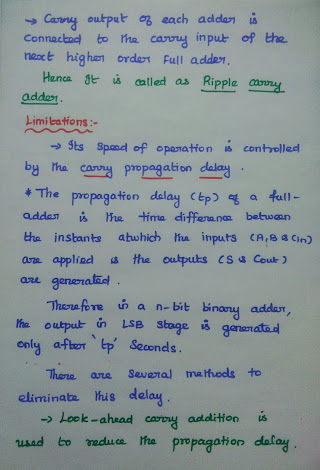 → Carry output of each adder is
connected to the carry input of the
next higher order full adder.
Hence It is called as Ripple carry
adder.
Limitations:-
→ Its speed of operation is controlled
by the carry propagation delay.
* The propagation delay (tp) of a full-
adder is the time difference between
the instants atwhich the inputs (A, B & Cin)
are applied & the outputs (S & Cout)
are generated.
Therefore in a n-bit binary adder,
the output in LSB stage is generated
only after 'tp' seconds.
There are several methods to
eliminate this delay.
→ Look-ahead carry addition is
used to reduce the propagation delay.